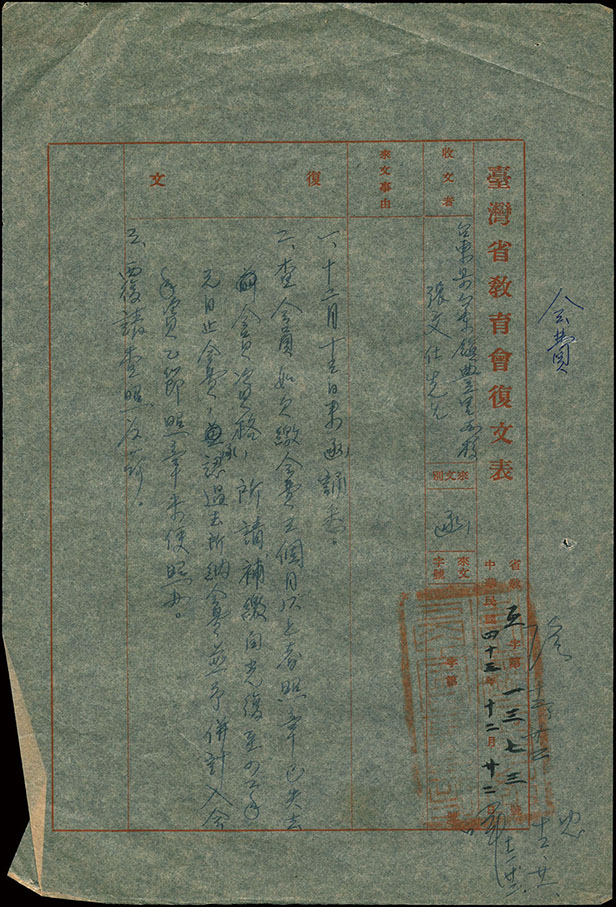 會費
臺灣省教育會復文表
收文者
台東縣台東鎮豐里國校
張文仕先生
來文別
函
來文字號
字第
號
省教互字第一三七三號
中華民國四十三年十二月廿二日
來文事由
復文
一、十二月十五日來函誦悉。
二、查會員如欠繳會費五個月以上者照章已失去
會員資格,所請補繳自光復至四二年
元月止會費,並認過去所納會費並予併計入會
年資乙節照章未便照办。
三、覆請查照為荷。